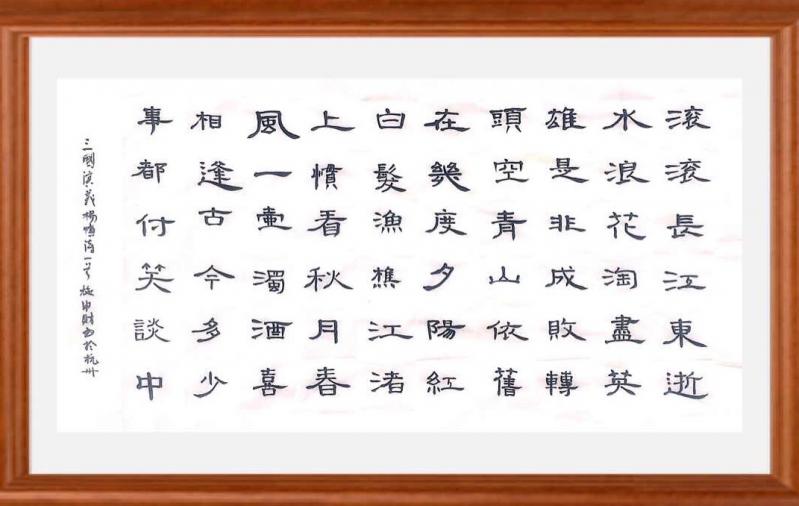 滚滚長江東逝
水浪花淘盡英
雄是非成敗轉
頭空青山依舊
在幾度夕陽紅
白髮漁樵江渚
上慣看秋月春
風一壷濁酒喜
相逢古今多少
事都付笑談中
三國演義楊慎詞一首 申財書於杭州